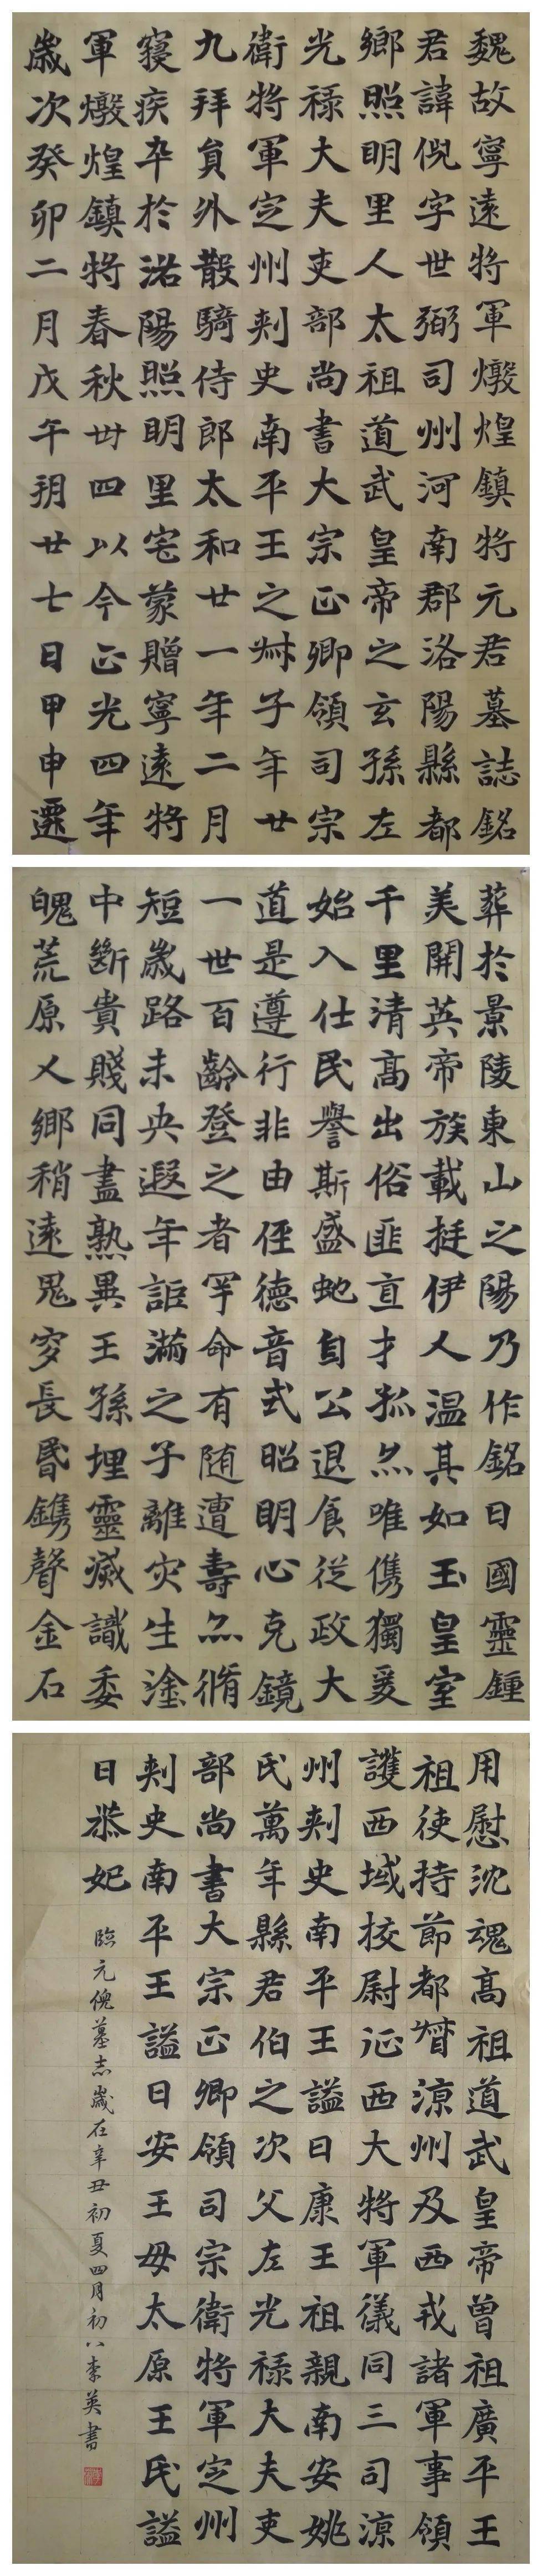 魏故寧遠將軍燉煌鎮將元君墓誌銘
君諱倪字世弼司州河南郡洛陽縣都
鄉照明里人太祖道武皇帝之玄孫左
光祿大夫吏部尚書大宗正卿領司宗
衛將軍定州刺史南平王之叔子年廿
九拜員外散騎侍郎太和廿一年二月
寢疾卒於洛陽照明里宅蒙贈寧遠將
軍燉煌鎮將春秋卅四以今正光四年
歲次癸卯二月戊午朔廿七日甲申遷
葬於景陵東山之陽乃作銘曰國靈鍾
美開英帝族載挺伊人温其如玉皇室
千里清高出俗匪直才孤亦唯儁獨爰
始入仕民譽斯盛虵自公退食從政大
道是遵行非由徑德音式昭明心克鏡
一世百齡登之者罕命有随遭壽亦脩
短歲路未央遐年詎滿之子離灾生塗
中斷貴賤同盡熟異王孫埋靈滅識委
魄荒原人鄉稍遠鬼穸長昏鐫聲金石
用慰沈魂高祖道武皇帝曾祖廣平王
祖使持節都督涼州及西戎諸軍事領
護西域校尉征西大將軍儀同三司涼
州刺史南平王謚曰康王祖親南安姚
氏萬年縣君伯之次父左光祿大夫吏
部尚書大宗正卿領司宗衛將軍定州
刺史南平王謚曰安王母太原王氏謚
曰恭妃
臨元倪墓志歲在辛丑初夏四月初八李英書